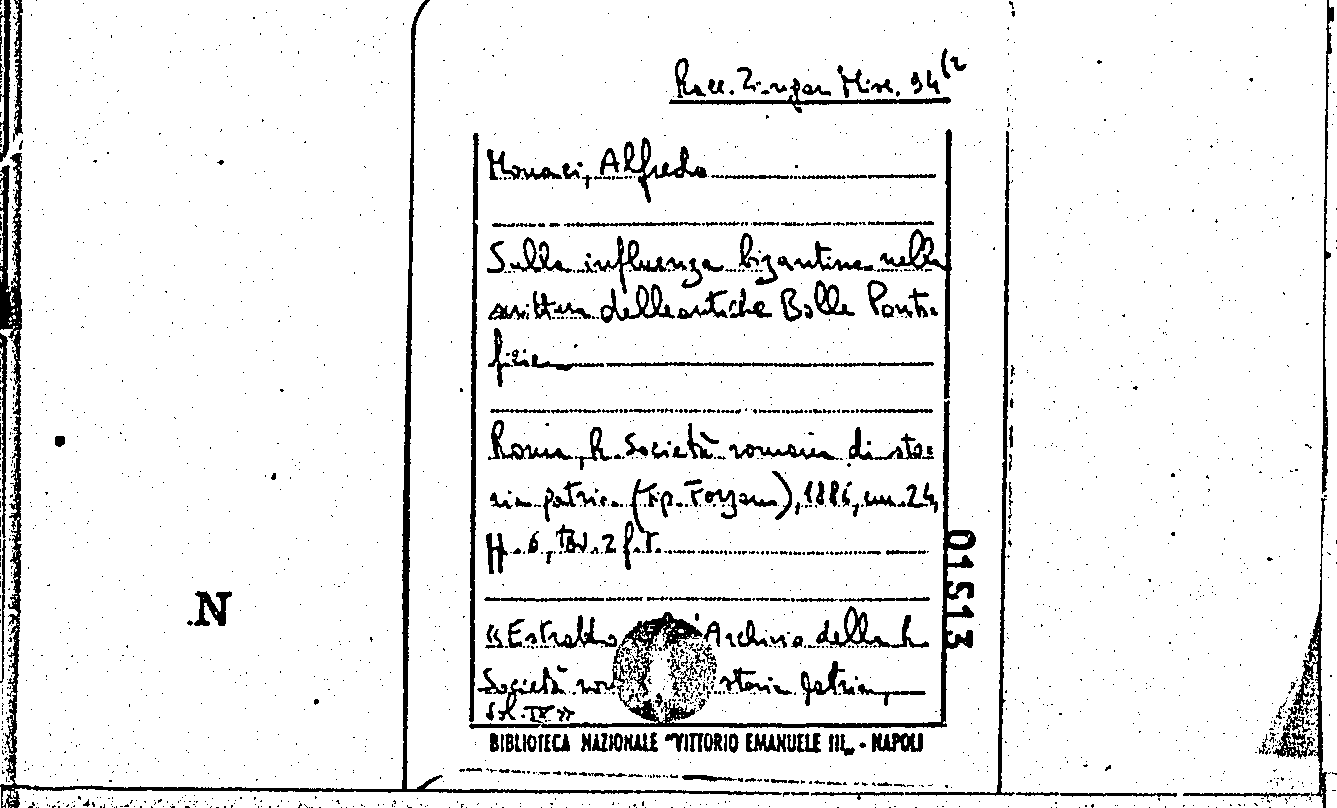 Race. Zingar Misc. 94(2
Monaci, Alfredo
Sulla influenza bizantina nella
scrittura delle antiche Bolle Ponti=
ficie
Roma, R. Società romana di sto=
ria patria (Tip. Forzani), 1886, cm. 24,
pp. 6, tav. 2 f.t.
«Estratto Archivio della R.
Società storia patria,
vol. IX»
01513
N
BIBLIOTECA NAZIONALE "VITTORIO EMANUELE III„ - NAPOLI